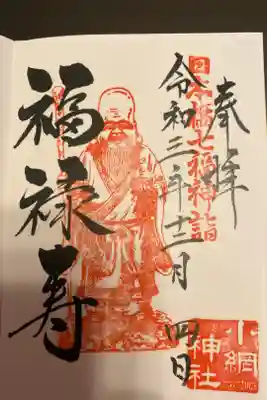 奉拝
日本橋七福神詣
令和三年十二月四日
小網
神社
福禄寿